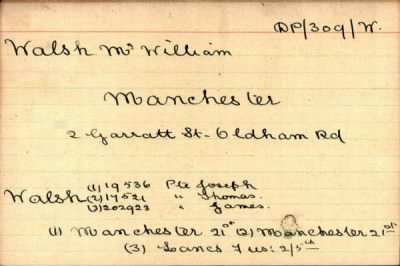 DP/309/W.
Walsh Mr William
Manchester
2 Garratt St - Oldham Rd
(1) 19536 Pte Joseph
Walsh (2) 17521 " Thomas.
(3) 202923 " James.
(1) Manchester 21st (2) Manchester 21st
(3) Lancs Fus: 2/5th